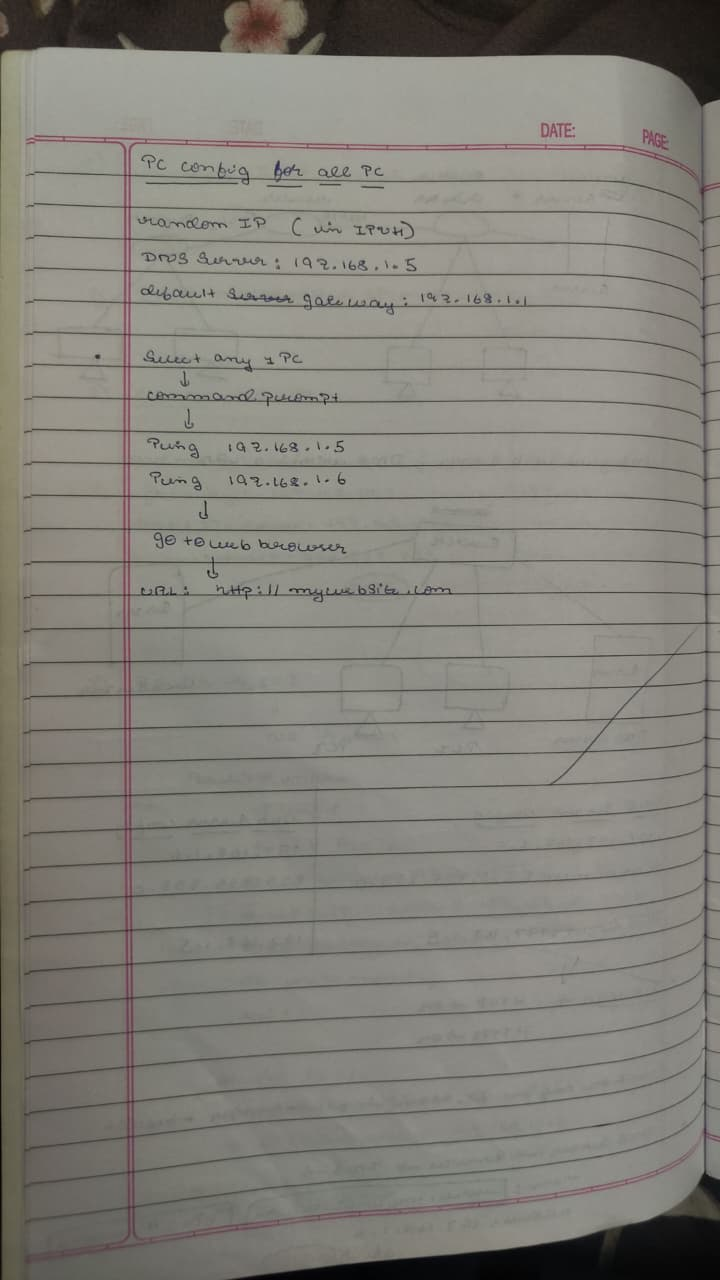 DATE:
PAGE:
PC config for all PC
random IP (in IPV4)
DNS Server: 192.168.1.5
default server gateway: 192.168.1.1
Select any 1 PC
↓
command prompt
↓
Ping 192.168.1.5
Ping 192.168.1.6
↓
go to web browser
↓
URL: http://mywebsite.com